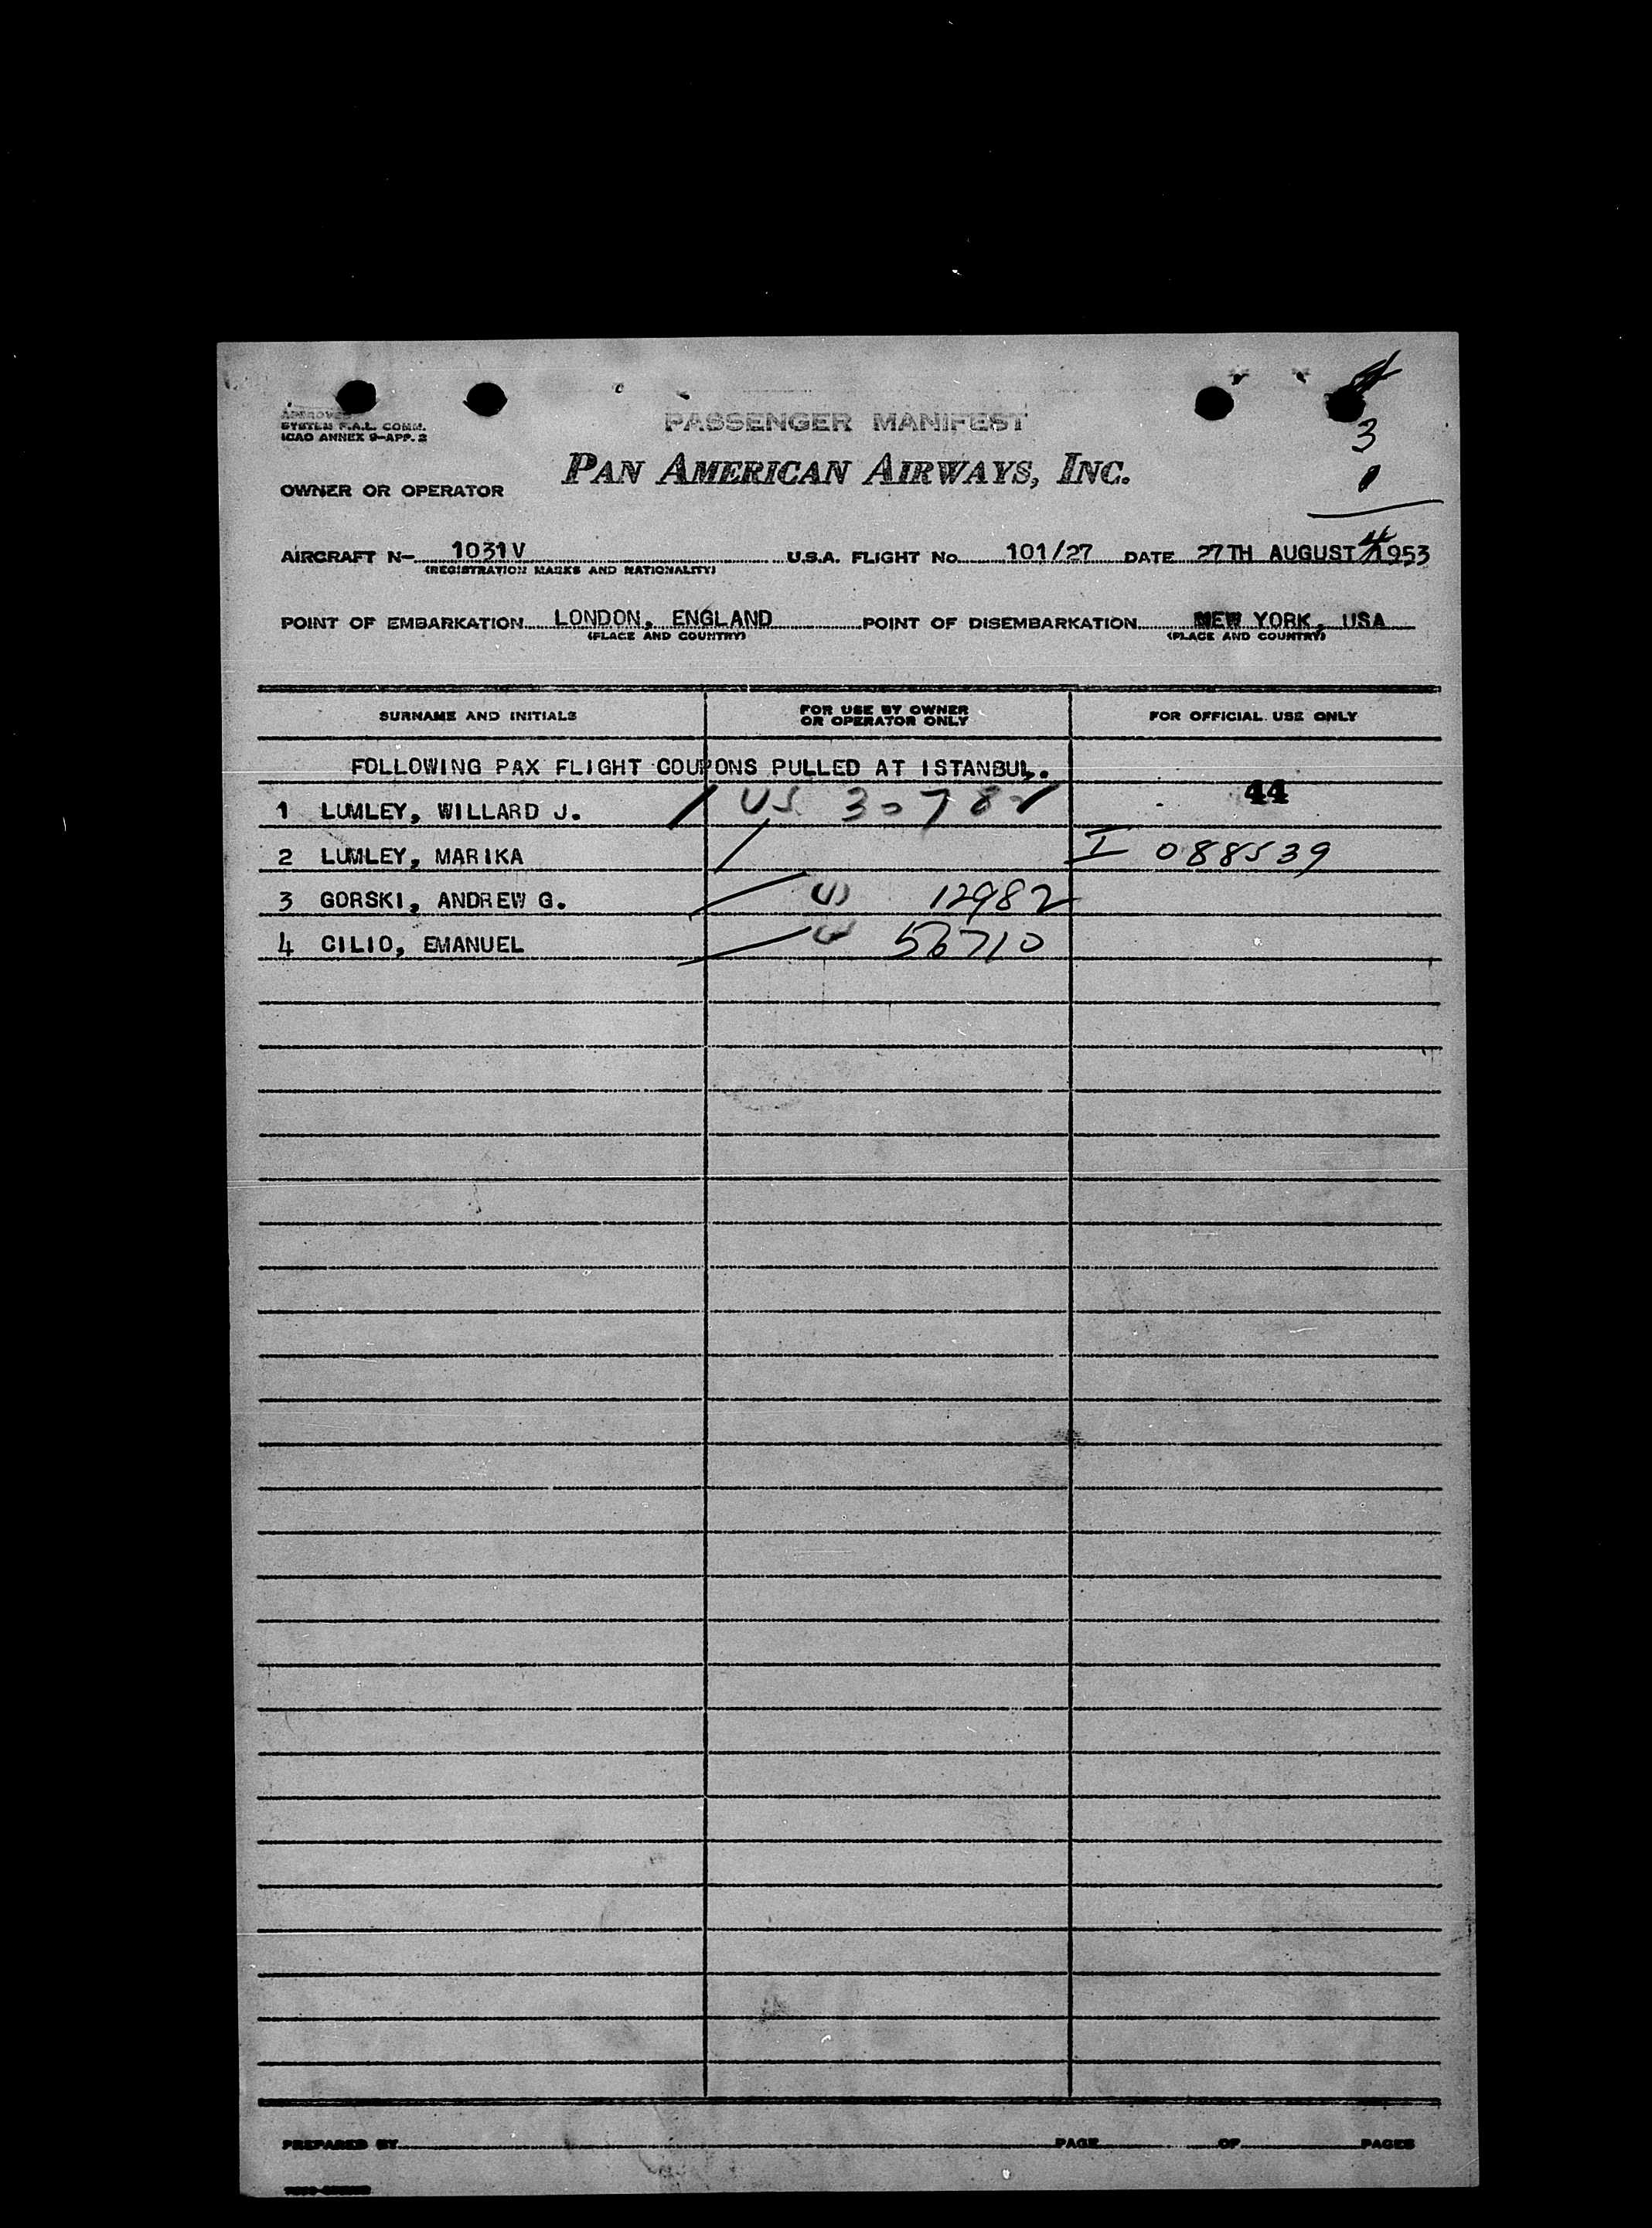 APPROVED
SYSTEM F.A.L. COMM.
ICAO ANNEX 9-APP. 2
PASSENGER MANIFEST
PAN AMERICAN AIRWAYS, INC.
OWNER OR OPERATOR
3
1
4
AIRCRAFT N- 1031V U.S.A. FLIGHT No. 101/27 DATE 27TH AUGUST 1953
(REGISTRATION MARKS AND NATIONALITY)
POINT OF EMBARKATION LONDON, ENGLAND POINT OF DISEMBARKATION NEW YORK, USA
(PLACE AND COUNTRY) (PLACE AND COUNTRY)
SURNAME AND INITIALS FOR USE BY OWNER OR OPERATOR ONLY FOR OFFICIAL USE ONLY
FOLLOWING PAX FLIGHT COUPONS PULLED AT ISTANBUL.
44
1 LUMLEY, WILLARD J. US 30782
2 LUMLEY, MARIKA I 088539
3 GORSKI, ANDREW G. US 12982
4 CILIO, EMANUEL 56710
PREPARED BY PAGE OF PAGES